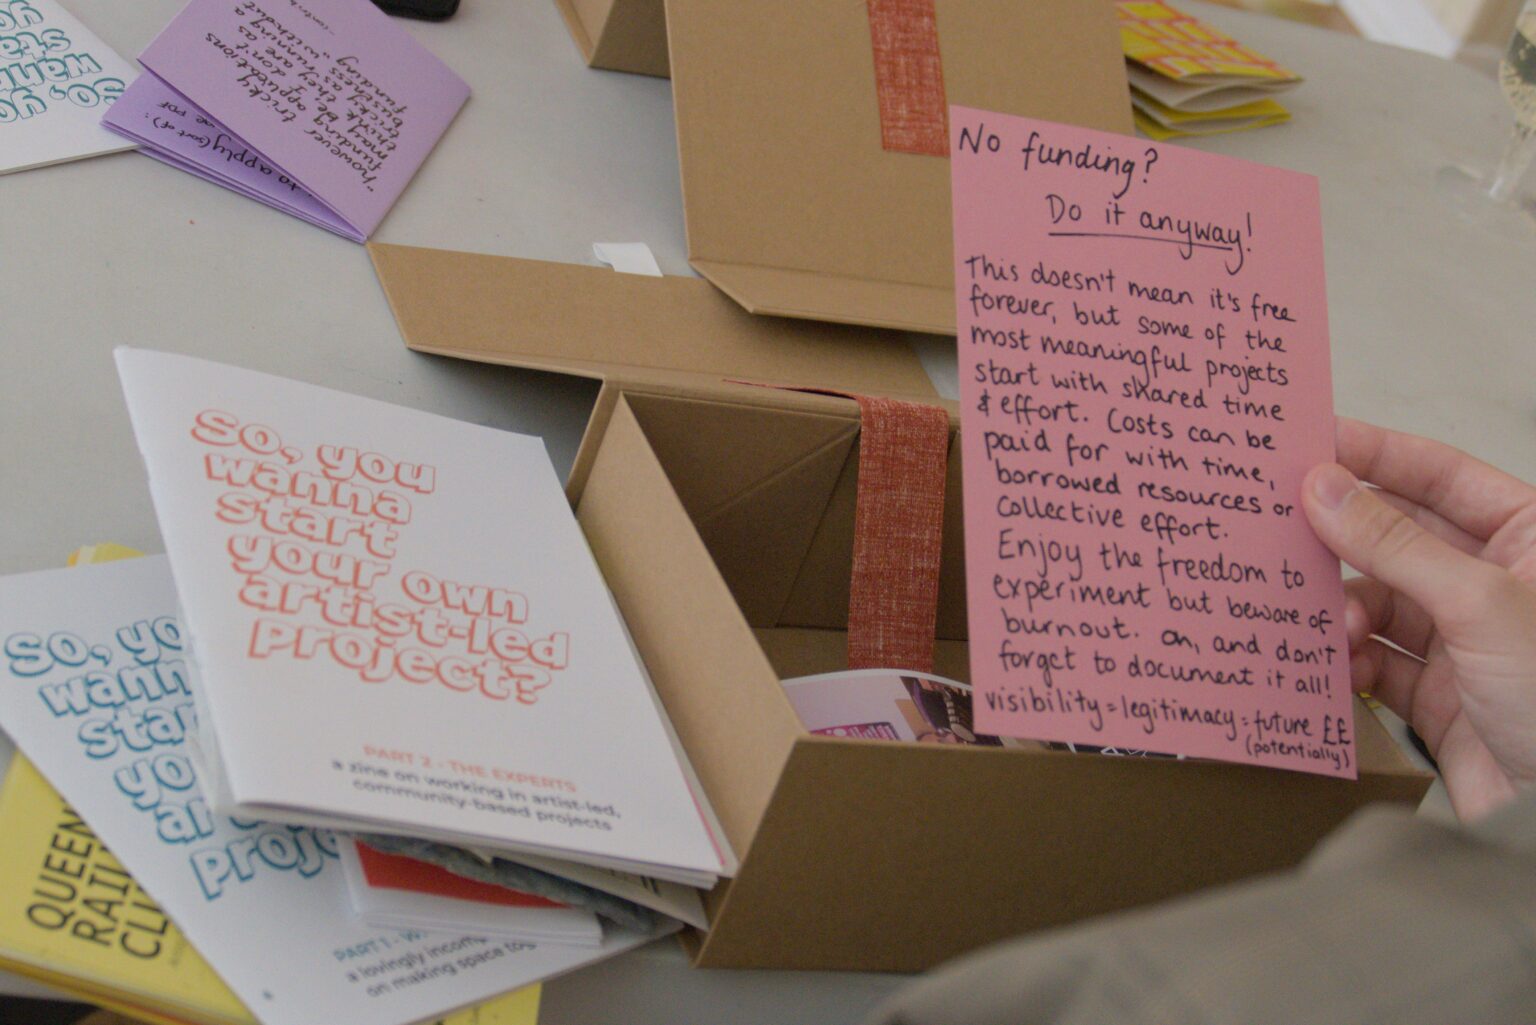 No funding?
Do it anyway!
This doesn't mean it's free
forever, but some of the
most meaningful projects
start with shared time
& effort. Costs can be
paid for with time,
borrowed resources or
collective effort.
Enjoy the freedom to
experiment but beware of
burnout. Oh, and don't
forget to document it all!
visibility = legitimacy = future ££
(potentially)
So, you
wanna
start
your own
artist-led
project?
PART 2 - THE EXPERTS
a zine on working in artist-led,
community-based projects
So, yo
wann
star
yo
ar
proje
PART 1 - W
a lovingly incom
on making space tog
QUEEN
RAIL
CL
"however tricky
funding applications
may be, they don't
fund
to apply (sort of):
So, yo
wann
sta
yo